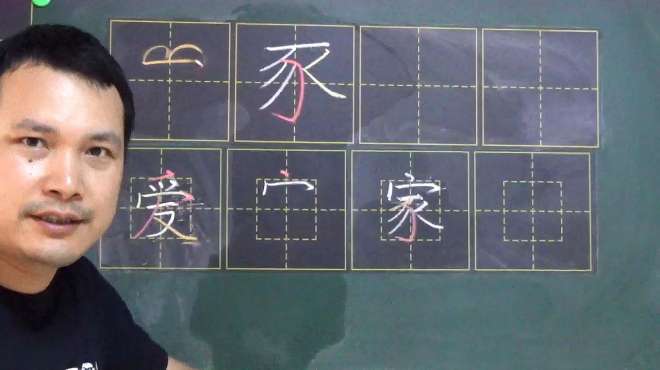 豕
爱 宀 家